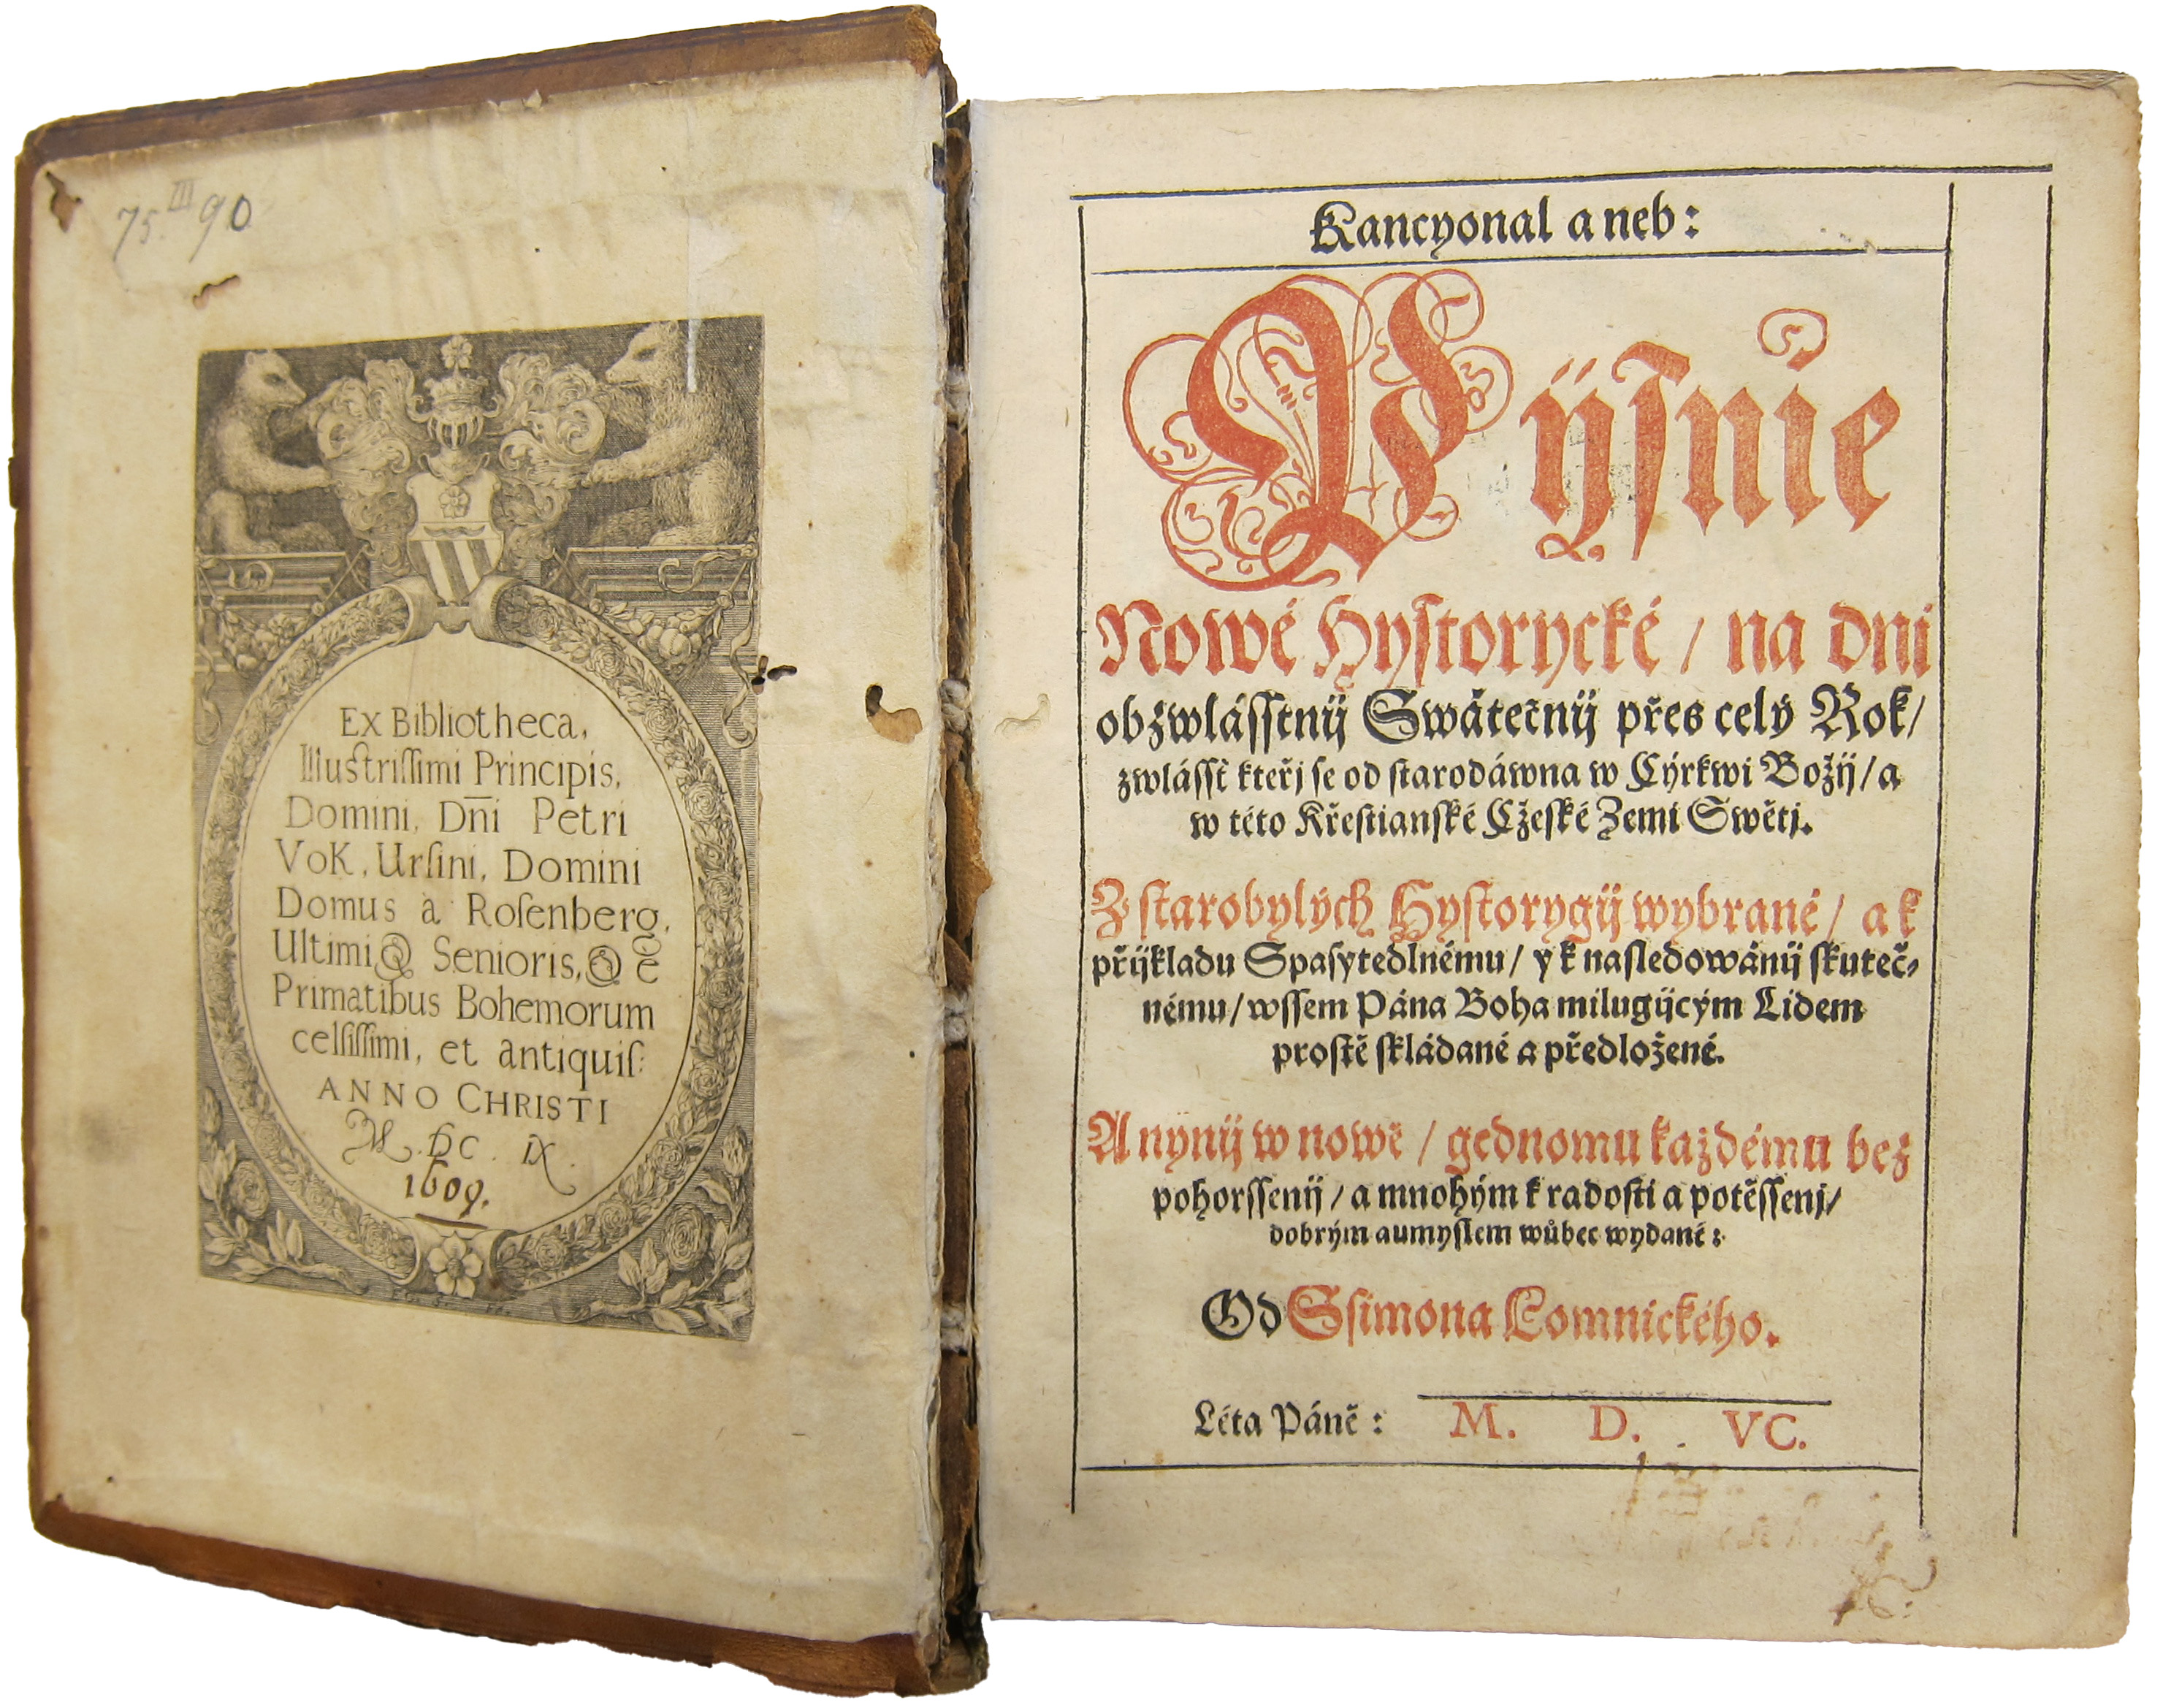 75. III 90
Ex Bibliotheca,
Illustriſſimi Principis,
Domini, Dn̄i Petri
VoK, Urſini, Domini
Domus à Roſenberg,
UltimiQ Senioris, Q è
Primatibus Bohemorum
celſiſſimi, et antiquiſ:
ANNO CHRISTI
M. DC. IX.
1609.
Kancyonal a neb:
Pijſnie
Nowé Hyſtorycké / na dni
obzwláſſtnij Swátečnij přes celý Rok /
zwláſſť kteřj ſe od ſtarodáwna w Cýrkwi Božij / a
w této Křeſtianſké Cžeſké Zemi Swětj.
Z ſtarobylých Hyſtorygij wybrané / a k
přijkladu Spaſytedlnému / y k naſledowánij ſkuteč-
nému / wſſem Pána Boha milugijcým Lidem
proſtě ſkládané a předložené.
A nynij w nowě / gednomu každému bez
pohorſſenij / a mnohým k radoſti a potěſſenj /
dobrým aumyſlem wůbec wydané:
Od Sſimona Lomnického.
Léta Páně: M. D. VC.